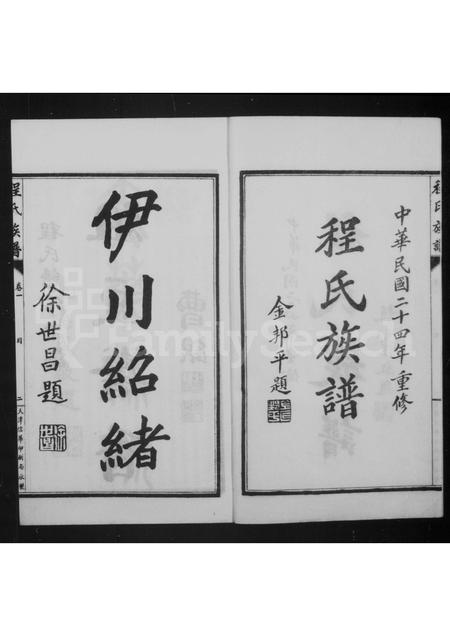 中華民國二十四年重修
程氏族譜
金邦平題
伊川紹緒
徐世昌題
程氏族譜
卷一
程氏族譜
FamilySearch